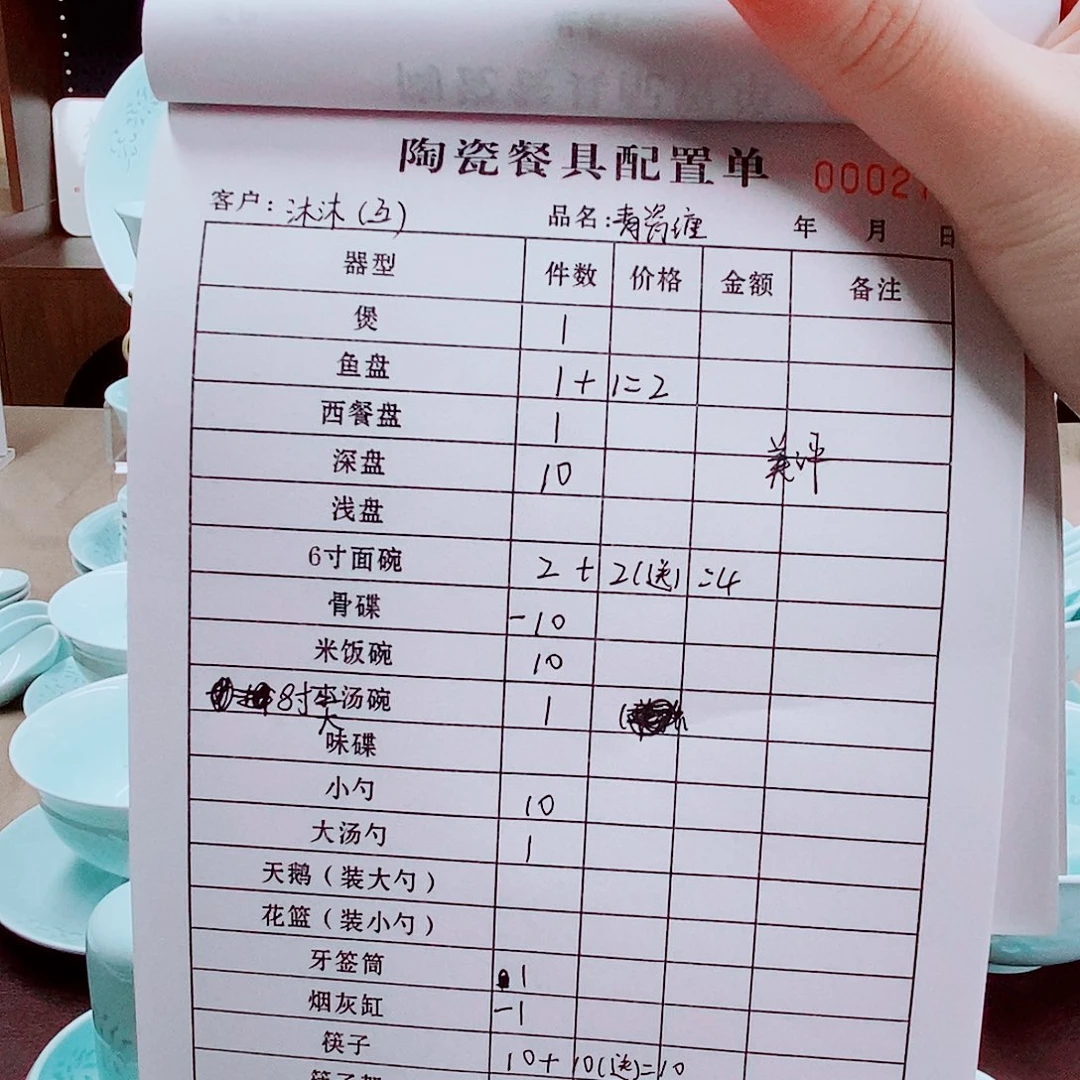 陶瓷餐具配置单 00027
客户：沐沐（五） 品名：青瓷缠 年 月 日
器型 件数 价格 金额 备注
煲 1
鱼盘 1+1=2
西餐盘 1
深盘 10
浅盘
6寸面碗 2+2(送)=4
骨碟 -10
米饭碗 10
8寸大汤碗 1
味碟
小勺 10
大汤勺 1
天鹅（装大勺）
花篮（装小勺）
牙签筒 1
烟灰缸 -1
筷子 10+10(送)=10